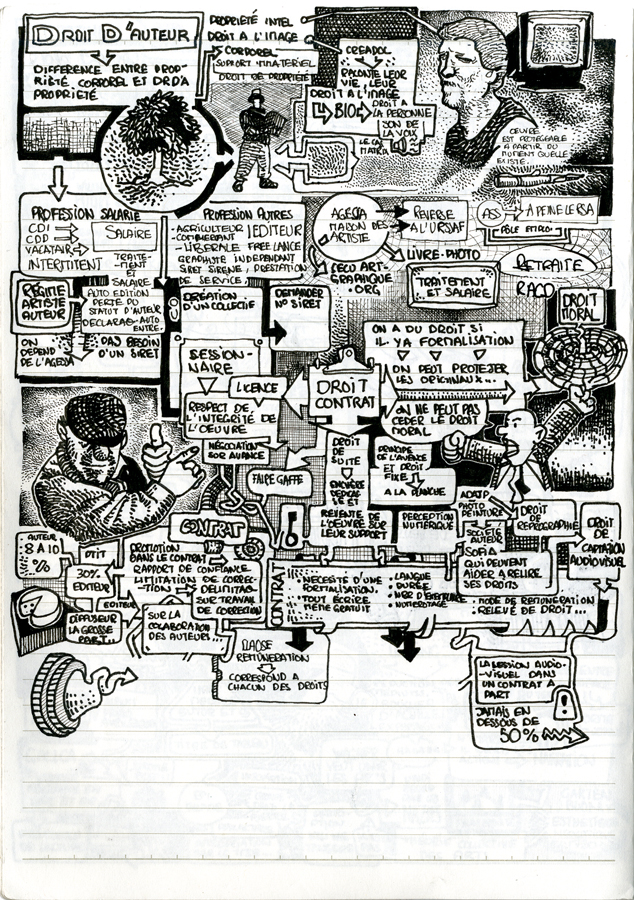 DROIT D'AUTEUR
DIFFERENCE ENTRE PROP-
RIÉTÉ CORPOREL ET DR DA
PROPRIÉTÉ
PROPRIÉTÉ INTEL
DROIT A L'IMAGE
CORPOREL
SUPORT IMMATERIEL
DROIT DE PROPRIÉTÉ
CREADOL
RACONTE LEUR
VIE, LEUR
DROIT A L'IMAGE
BIO
DROIT A
LA PERSONNE
SON DE
LA VOIX
ŒUVRE
EST PROTEGEABLE
A PARTIR DU
EXISTE.
PROFESSION SALARIÉ
CDI
CDD
VACATAIR
INTERMITTENT
SALAIRE
TRAITE-
MENT
ET
SALAIRE
PROFESSION AUTRES
- AGRICULTEUR
- COMMERÇANT
EDITEUR
- LIBERALE FREE LANCE
GRAPHISTE INDEPENDANT
SIRET SIRENE, PRESTATION
DE SERVICE
AGESSA
MAISON DES
ARTISTE
REVERSE
A L'URSAF
ASS
A PEINE LE RSA
PÔLE EMPLOI
LIVRE-PHOTO
L'ECO ART-
GRAPHIQUE
.ORG
TRAITEMENT
ET SALAIRE
RETRAITE
RACD
DROIT
MORAL
REGITIE
ARTISTE
AUTEUR
AUTO EDITION
PERTE DU
STATUT D'AUTEUR
DECLARAE-AUTO
ENTRE.
ON
DEPEND
DE L'AGESSA
PAS BESOIN
D'UN SIRET
CREATION D'UN
COLLECTIF
DEMANDER
N° SIRET
ON A DU DROIT SI
IL. YA FORMALISATION
ON PEUT PROTEGER
LES ORIGINAUX...
SESSION-
NAIRE
LICENCE
DROIT
CONTRAT
RESPECT DE
L'INTEGRITÉ DE
L'OEUVRE
ON NE PEUT PAS
CEDER LE DROIT
MORAL
NÉGOCIATION
SUR AVANCE
FAIRE GAFFE
DROIT
DE
SUITE
ENCHÈRE
DEDICACE
ET
REVENTE DE
L'OEUVRE SUR
LEUR SUPPORT
PRINCIPE
DE L'AVENCE
ET DROIT
FIXE
A LA PLANCHE
PERCEPTION
NUMERIQUE
ADATP
PHOTO
PEINTURE
DROIT
DE
REPROGRAPHIE
DROIT
DE
CAPTATION
AUDIOVISUEL
SOCIÉTÉ
AUTEUR
SOFIA
QUI PEUVENT
AIDER A RELIRE
SES DROITS
CONTRAT
AUTEUR
8 A 10
%
PTIT
30%
EDITEUR
EDITEUR
DIFFUSEUR
LA GROSSE
PART...
PROMOTION
DANS LE CONTRAT
RAPPORT DE CONFIANCE
LIMITATION DE CORREC-
TION
DELIMITAS
SUR TRAVAIL
DE CORRECTION
SUR LA
COLABORATION
DES AUTEURS...
CONTRAT
NECESITÉ D'UNE
FORMALISATION.
TOUT ÉCRIRE
MÊME GRATUIT
• LANGUE
• DURÉE.
• NUMEROTAGE
• MODE DE REMUNERATION
• RELEVÉ DE DROIT...
CLAUSE
REMUNERATION
CORRESPOND A
CHACUN DES DROITS
LA SESSION AUDIO-
VISUEL DANS
UN CONTRAT A
PART
JAMAIS EN
DESSOUS DE
50%
!